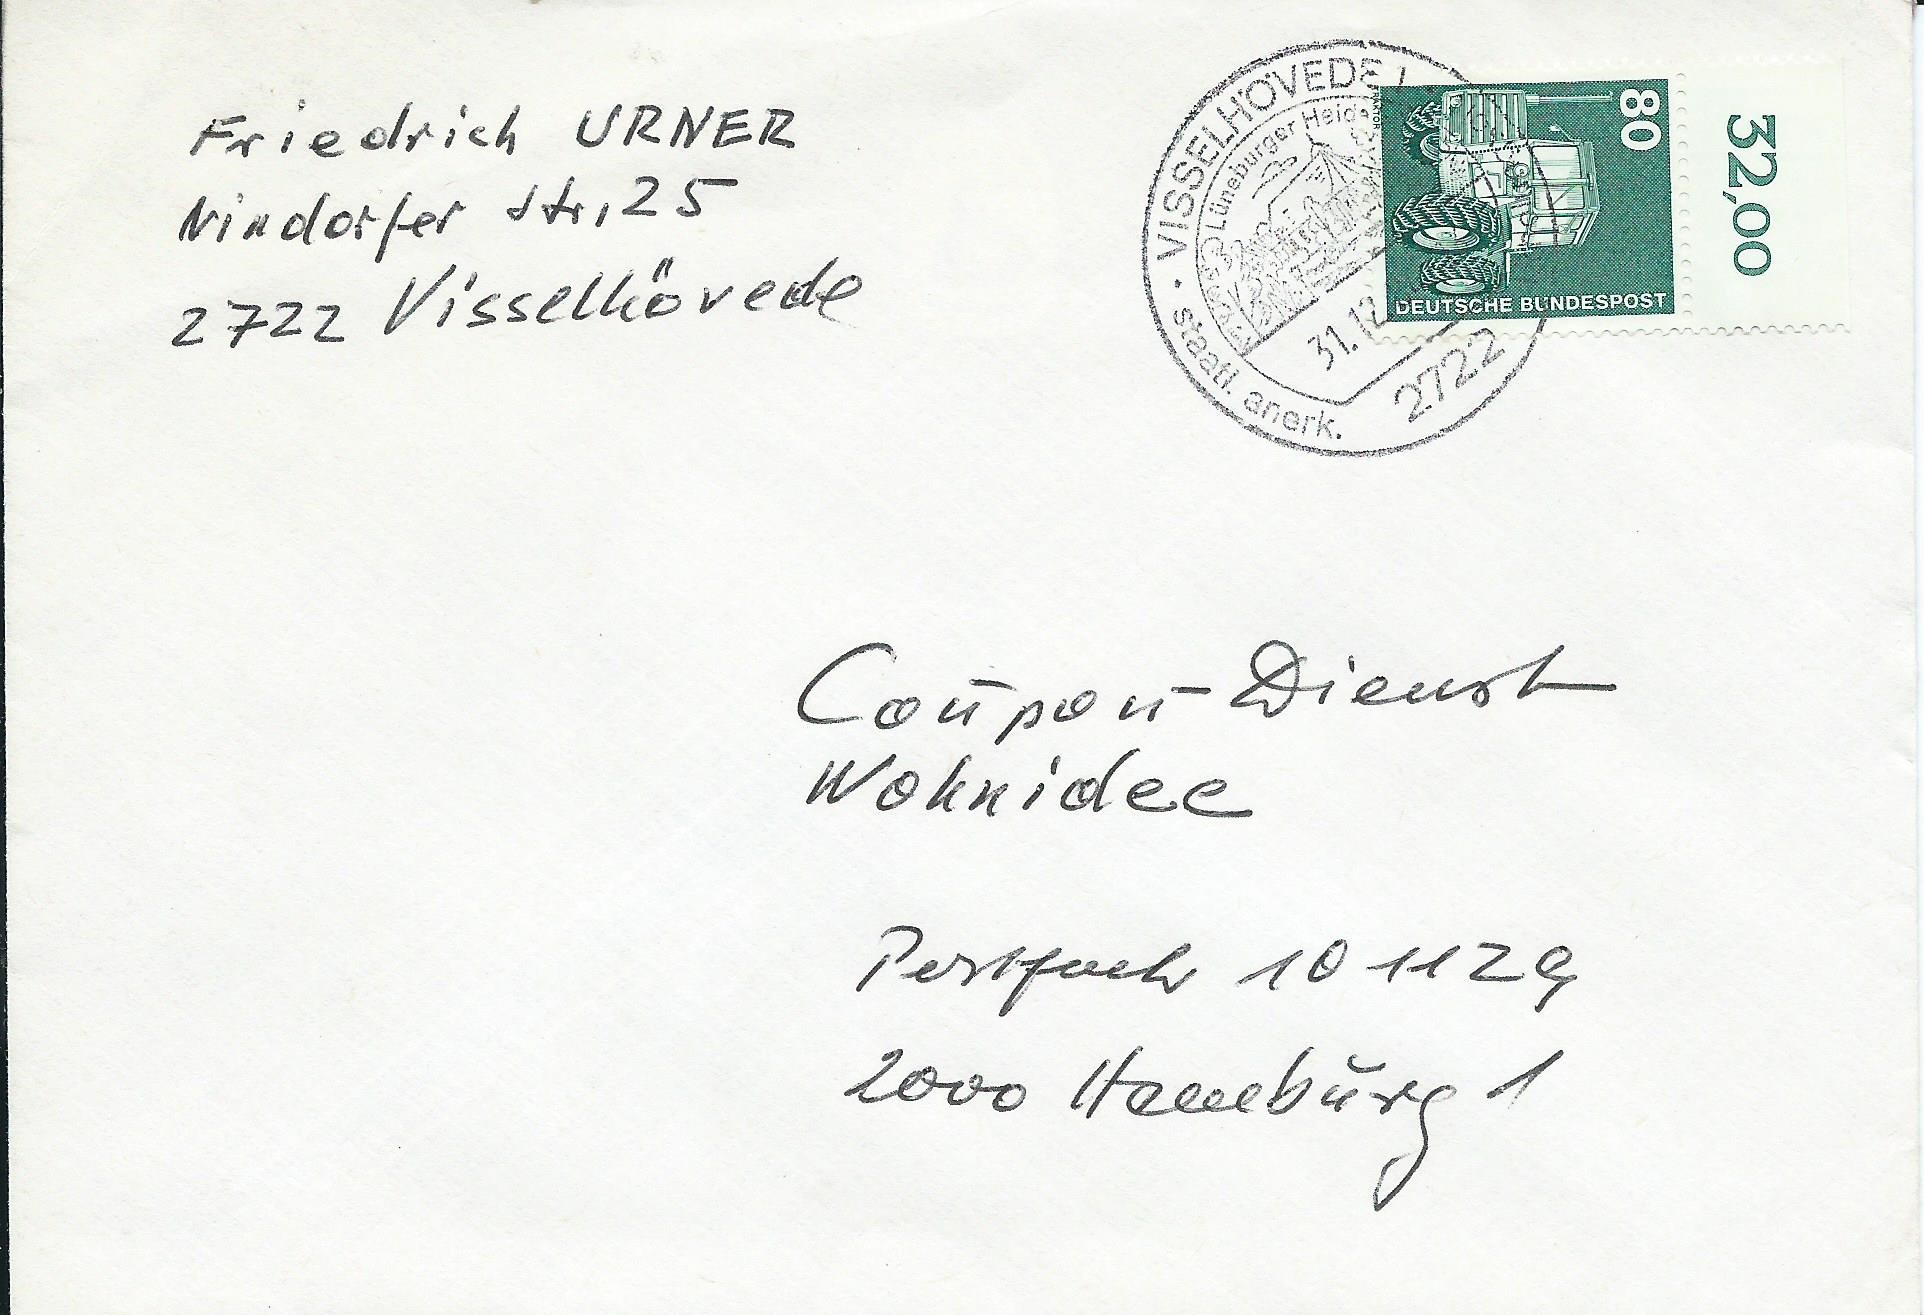 Friedrich URNER
Nindorfer Str. 25
2722 Visselhövede
VISSELHÖVEDE
Lüneburger Heide
staatl. anerk.
31.12
2722
TRAKTOR
80
DEUTSCHE BUNDESPOST
32,00
Coupon-Dienst
Wohnidee
Postfach 10 11 29
2000 Hamburg 1